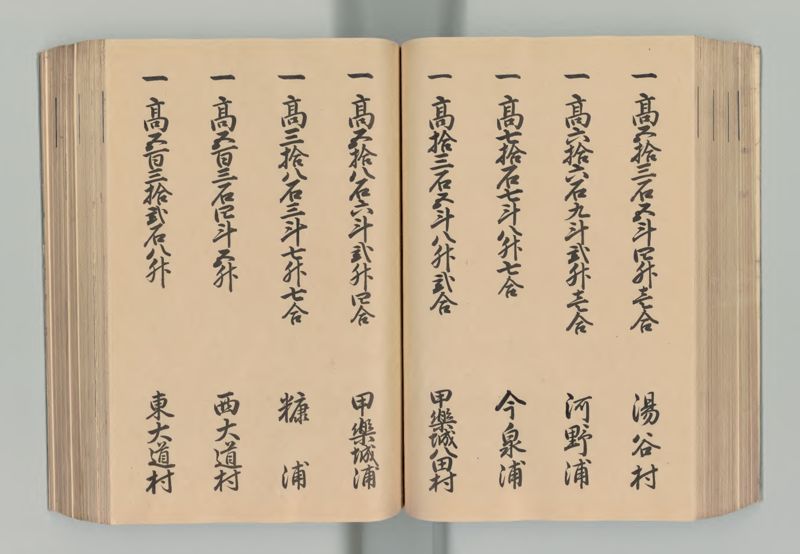 一 高五拾三石五斗四升壱合 湯谷村
一 高六拾六石九斗弐升壱合 河野浦
一 高七拾石七斗八升七合 今泉浦
一 高拾三石五斗八升弐合 甲樂城八田村
一 高五拾八石六斗弐升四合 甲樂城浦
一 高三拾八石三斗七升七合 糠浦
一 高五百三石四斗五升 西大道村
一 高五百三拾弐石八升 東大道村